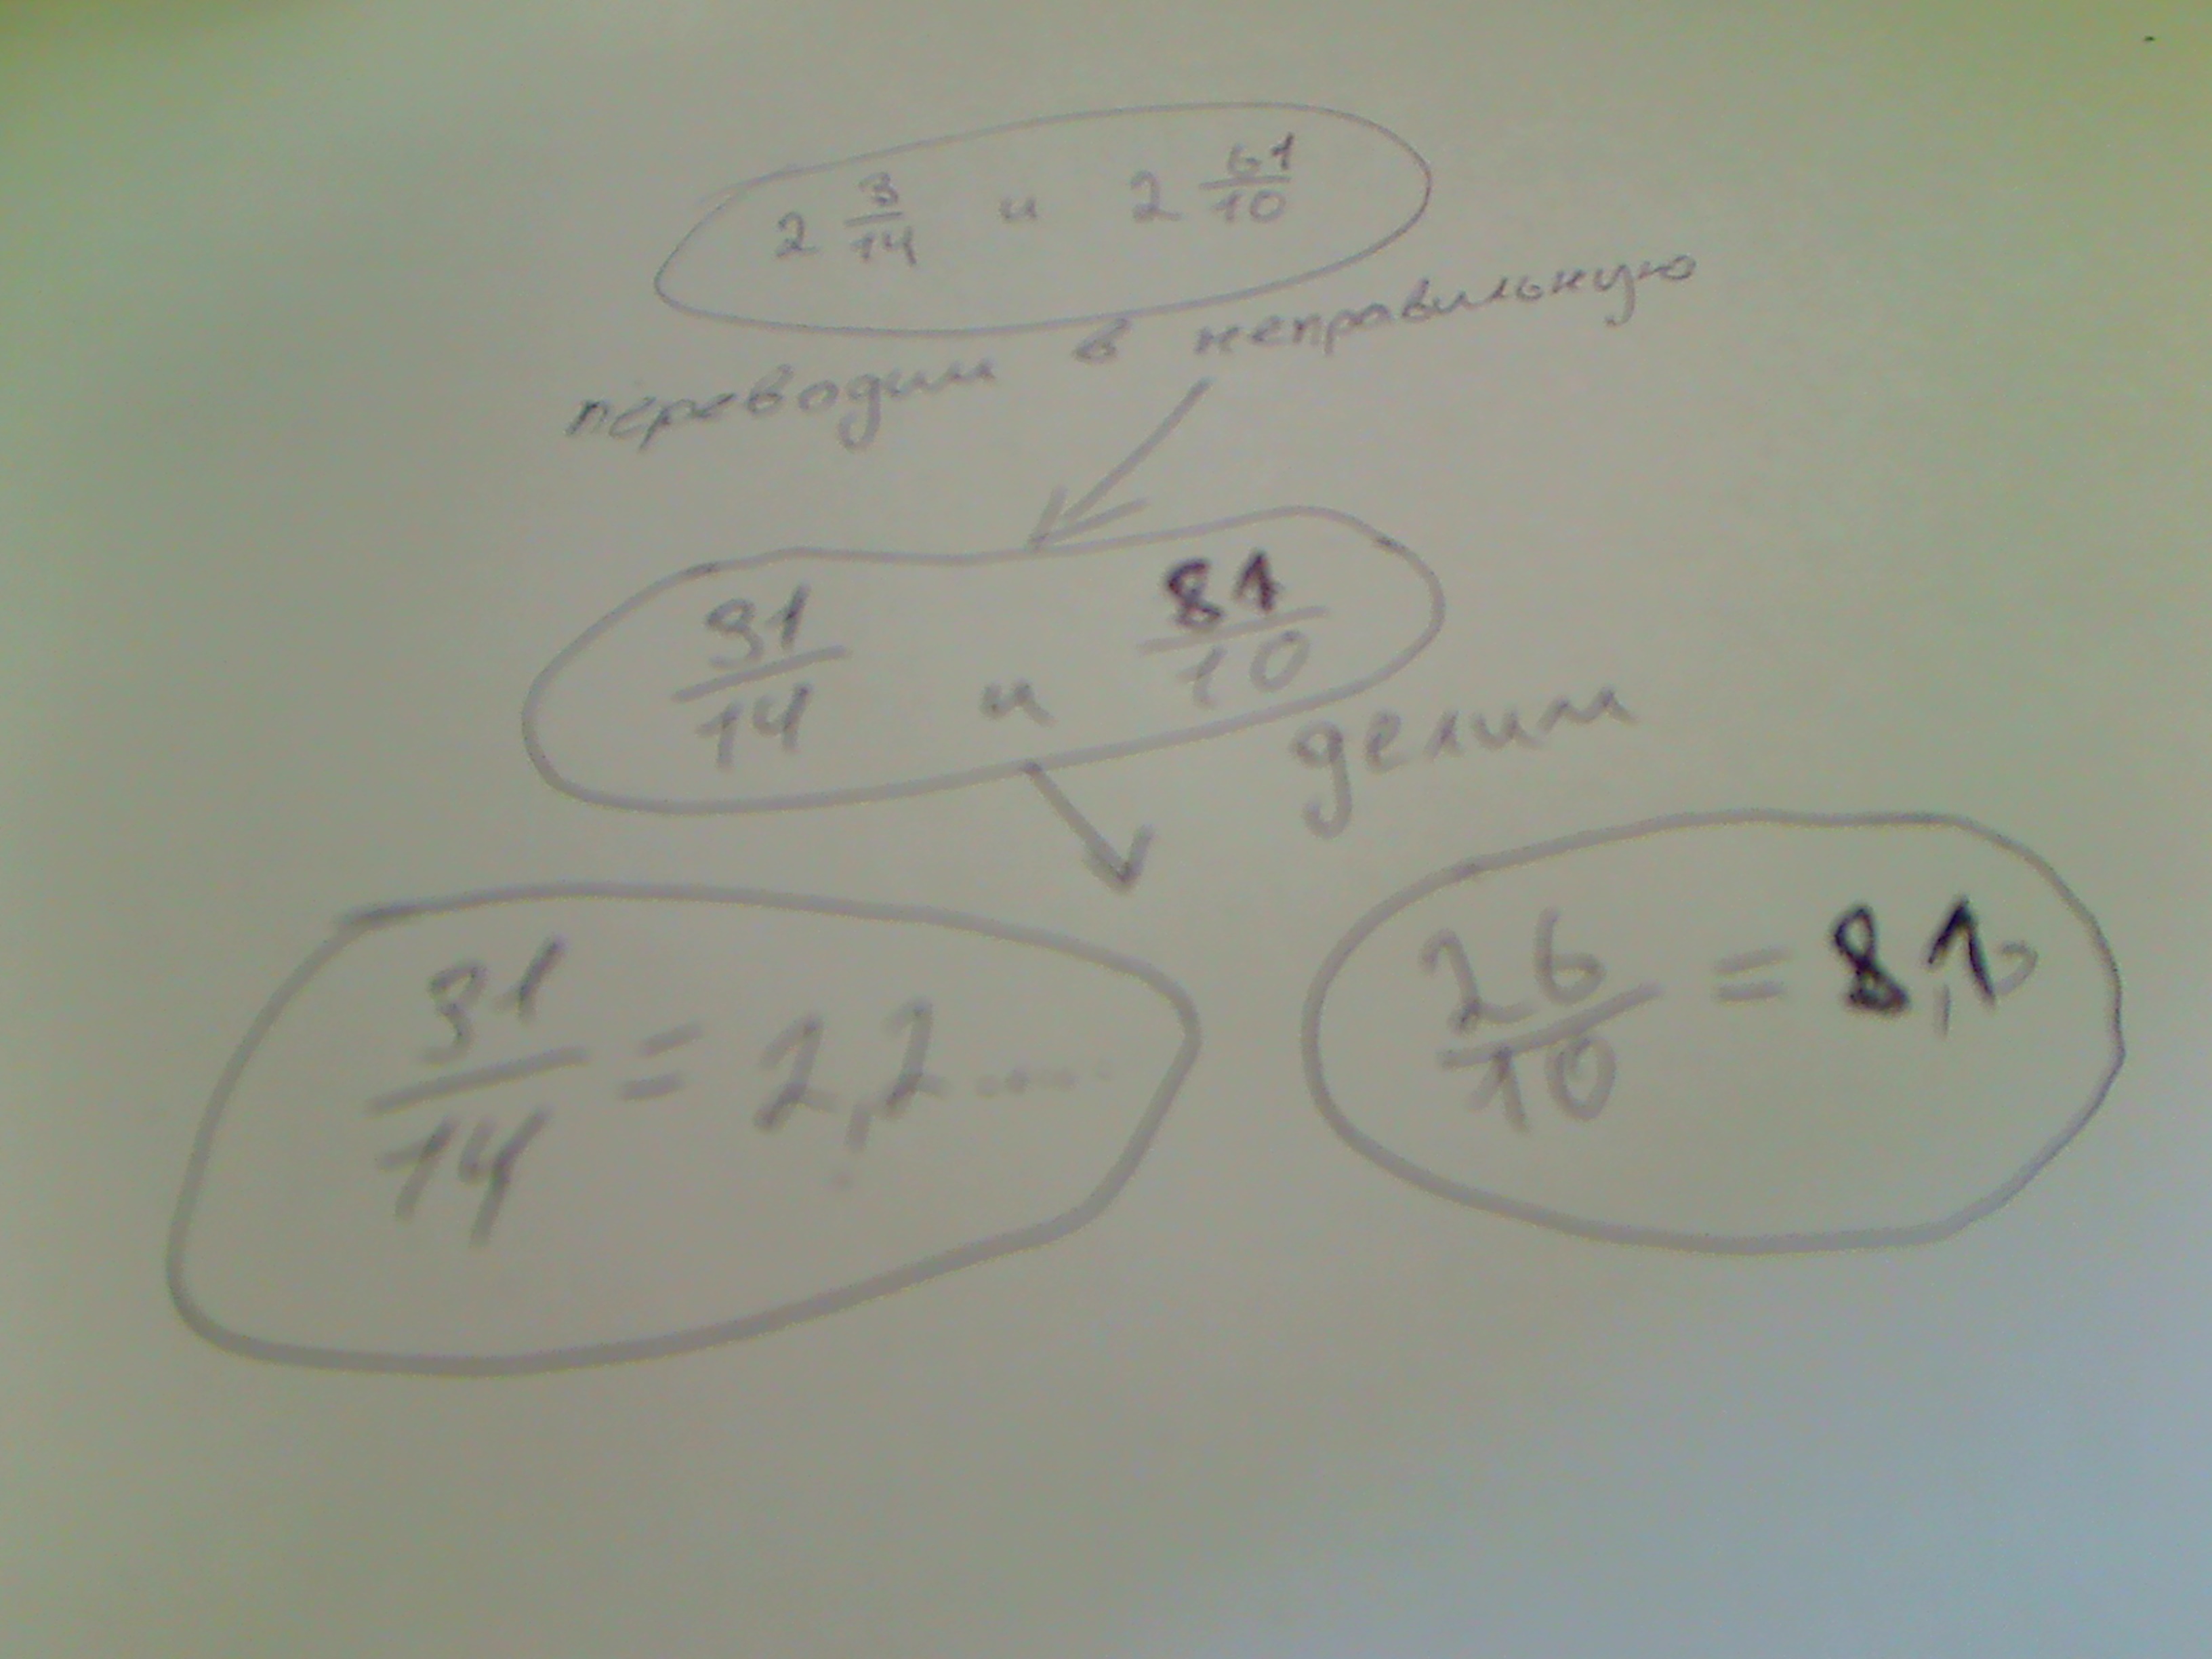 2 3/14 и 2 61/10
переводим в неправильную
31/14 и 81/10
делим
31/14 = 2,2.....
26/10 = 8,1